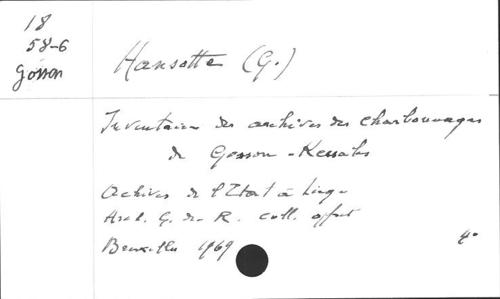 18
58-6
Gosson
Hansotte (G.)
Inventaire des archives des charbonnages
de Gosson - Kessales
Archives de l'Etat à Liège
Arch. G. du R. coll. offset
Bruxelles 1969
4°